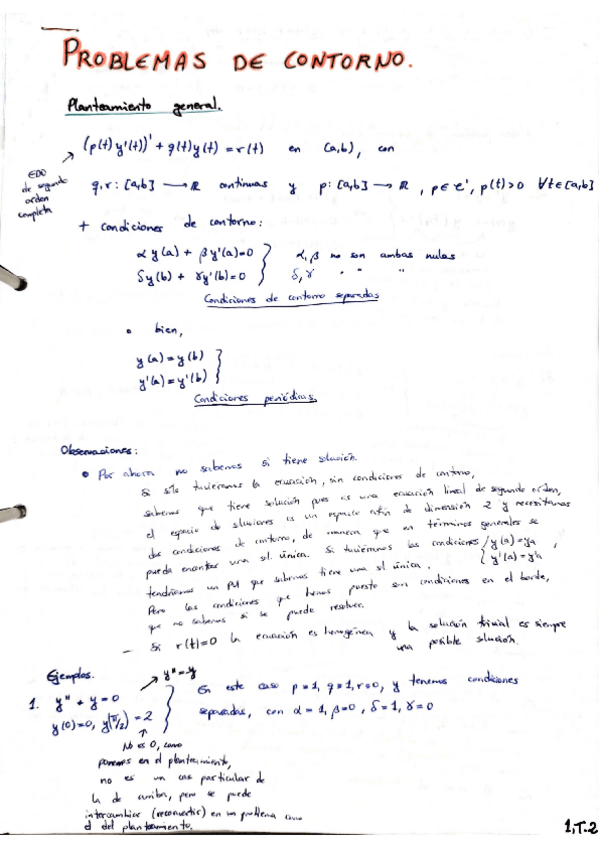 PROBLEMAS DE CONTORNO.
Planteamiento general.
(p(t) y'(t))' + q(t)y(t) = r(t) en (a,b), con
EDO
de segundo
orden
completa
q,r: [a,b] → ℝ continuas y p: [a,b] → ℝ, p∈C', p(t)>0 ∀t∈[a,b]
+ condiciones de contorno:
αy(a) + βy'(a)=0 } α,β no son ambas nulas
δy(b) + γy'(b)=0 } δ,γ " " "
Condiciones de contorno separadas
o bien,
y(a)=y(b)
y'(a)=y'(b) }
Condiciones periódicas.
Observaciones:
• Por ahora no sabemos si tiene solución.
Si sólo tuvieramos la ecuación, sin condiciones de contorno,
sabemos que tiene solución pues es una ecuación lineal de segundo orden,
el espacio de soluciones es un espacio afín de dimensión 2 y necesitamos
dos condiciones de contorno, de manera que en términos generales se
pueda encontrar una sol. única. Si tuviéramos las condiciones { y(a)=ya ,
y'(a)=y'a
tendríamos un PVI que sabemos tiene una sol única.
Pero las condiciones que hemos puesto son condiciones en el borde,
que no sabemos si se puede resolver.
– Si r(t)=0 la ecuación es homogénea y la solución trivial es siempre
una posible solución.
Ejemplos.
y''=-y
1. y'' + y = 0
y(0)=0, y(π/2) = 2
En este caso p=1, q=1, r=0, y tenemos condiciones
separadas, con α=1, β=0, δ=1, γ=0
No es 0, como
ponemos en el planteamiento,
no es un caso particular de
la de arriba, pero se puede
intercambiar (reconvertir) en un problema como
el del planteamiento.
1,T.2